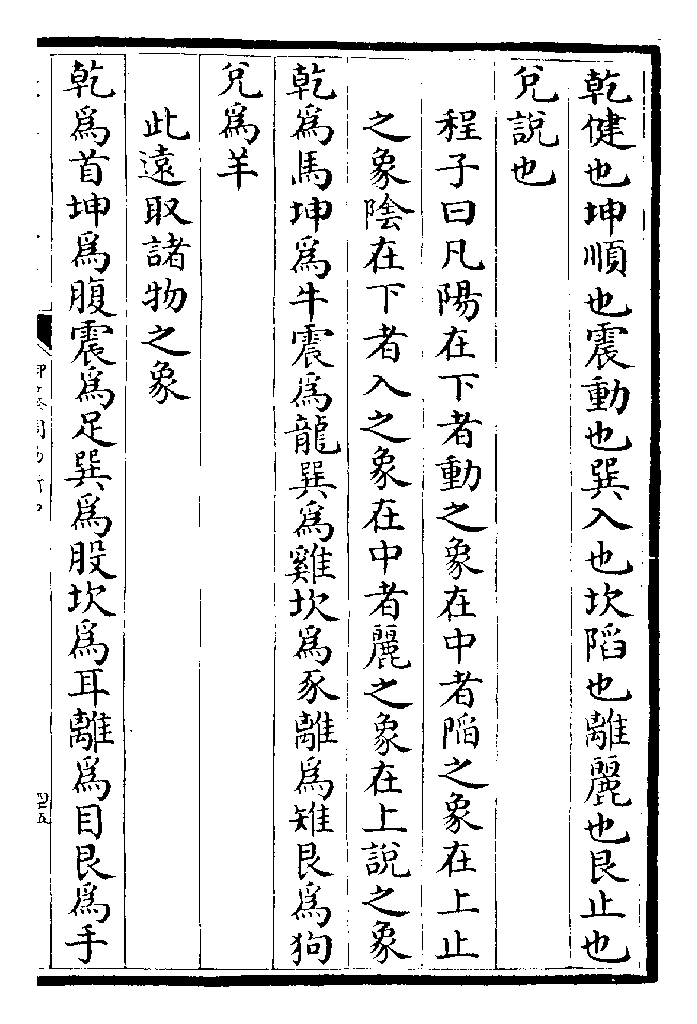 乾健也坤順也震動也巽入也坎陷也離麗也艮止也
兌說也
程子曰凡陽在下者動之象在中者陷之象在上止
之象陰在下者入之象在中者麗之象在上說之象
乾為馬坤為牛震為龍巽為雞坎為豕離為雉艮為狗
兌為羊
此遠取諸物之象
乾為首坤為腹震為足巽為股坎為耳離為目艮為手